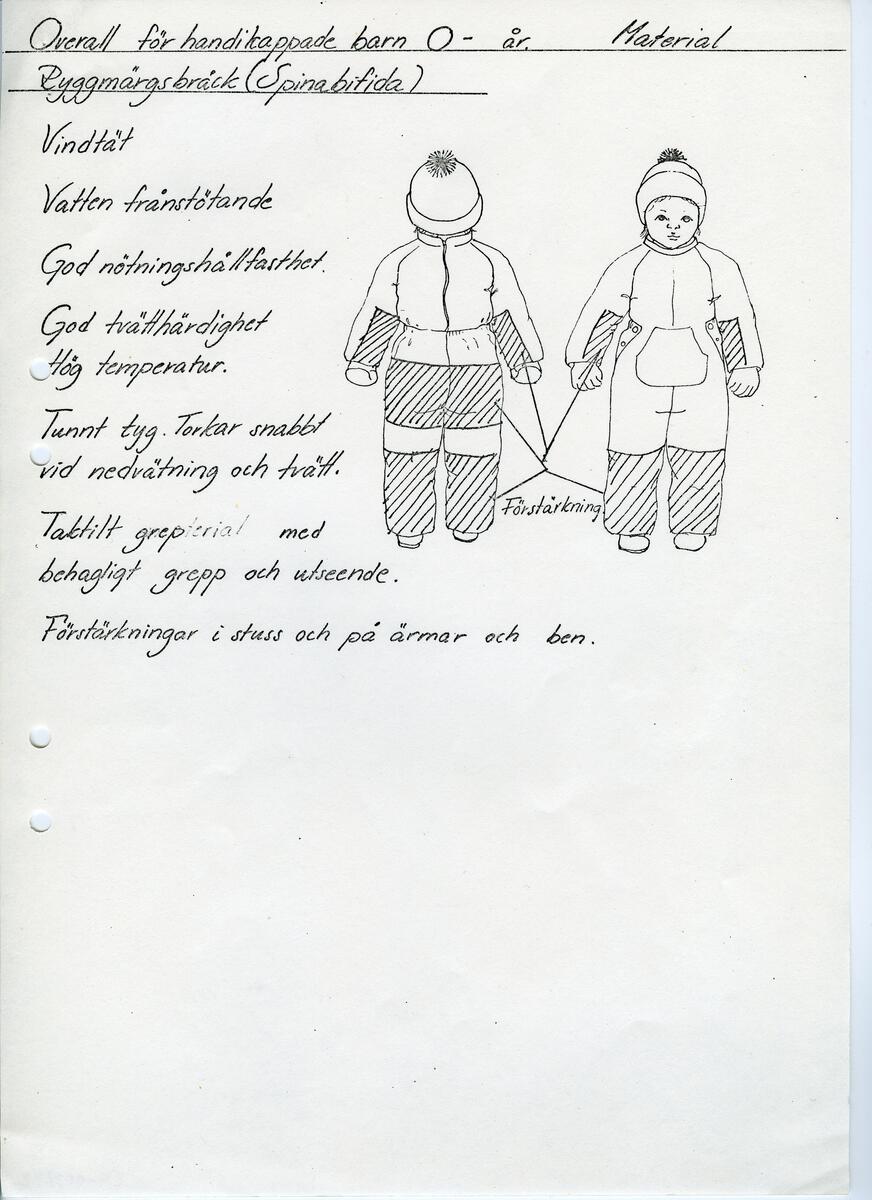 Overall för handikappade barn 0- år. Material
Ryggmärgsbråck (Spinabifida)
Vindtät
Vatten frånstötande
God nötningshållfasthet.
God tvätthärdighet
Hög temperatur.
Tunnt tyg. Torkar snabbt
vid nedvätning och tvätt.
Taktilt med
behagligt grepp och utseende.
Förstärkning
Förstärkningar i stuss och på ärmar och ben.